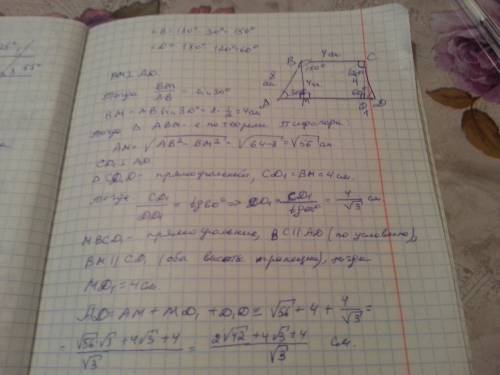 ∠B = 180° - 30° = 150°
∠D = 180° - 120° = 60°
B 4 см C
150°
8 см
4 см
A
M
D
BM ⊥ AD.
Тогда BM/AB = sin 30°
BM = AB sin 30° = 8 · 1/2 = 4 см
Тогда В ABM - е по теореме Пифагора
AM = √AB² - BM² = √64-8 = √56 см
CD₁ ⊥ AD
Δ CD₁D - прямоугольный, CD₁ = BM = 4 см.
Тогда CD₁/DD₁ = tg 60° => DD₁ = CD₁/tg 60° = 4/√3 см
MBCD₁ - прямоугольник, BC || AD (по условию),
BM || CD₁ (оба высоты трапеции), тогда
MD₁ = 4 см
AD = AM + MD₁ + D₁D = √56 + 4 + 4/√3 =
= √56 √3 + 4√3 + 4/√3 = 2√42 + 4√3 + 4/√3 см.